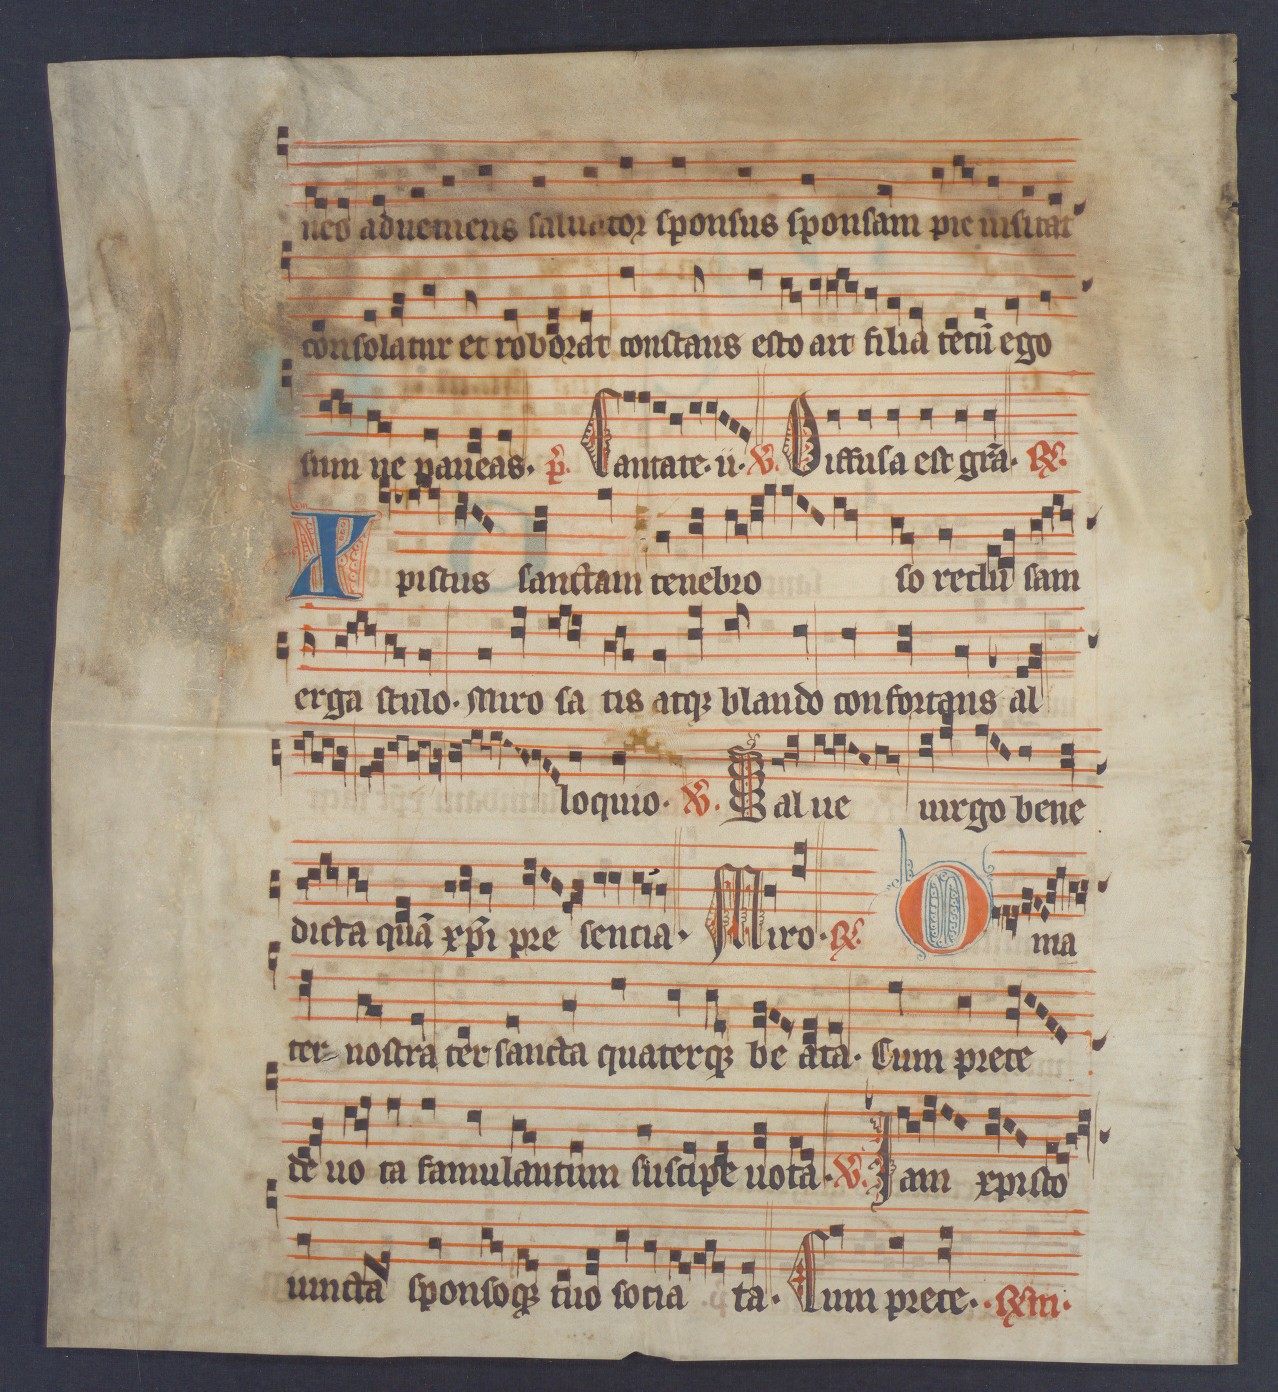 neo adueniens saluator sponsus sponsam pie uisitat
consolatur et roborat constans esto ait filia tecū ego
sum ne paueas. p̄. Cantate. ii. V. Diffusa est grā. R.
Xpistus sanctam tenebro so reclu sam
erga stulo. Miro sa tis atqꝫ blando confortans al
loquio. V. Salue uirgo bene
dicta quā xpi pre sencia. Miro. R. O ma
ter nostra ter sancta quaterqꝫ be ata. Cum prece
de uo ta famulantum suscipe uota. V. Iam xpisto
uincta sponsoqꝫ tuo socia ta. Cum prece.